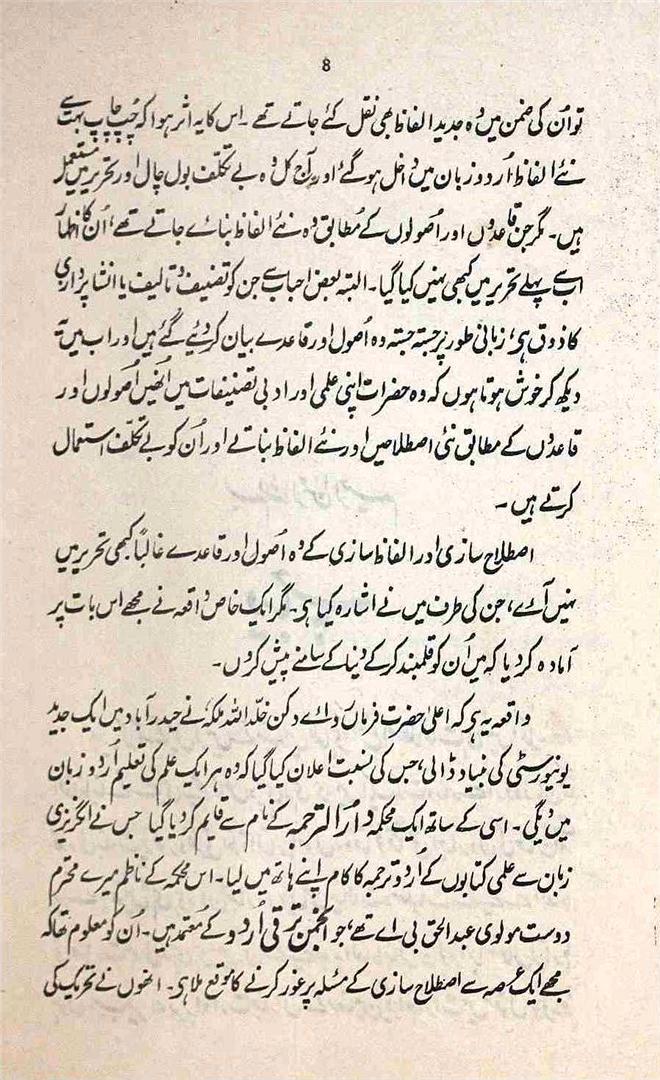 8
تو اُن کی ضمن میں وہ جدید الفاظ بھی نقل کئے جاتے تھے۔ اس کا یہ اثر ہوا کہ چُپ چاپ بہت سے
نئے الفاظ اُردو زبان میں داخل ہوگئے اور یہ آج کل وہ بے تکلّف بول چال اور تحریر میں مستعمل
ہیں۔ مگر جن قاعدوں اور اُصولوں کے مُطابق وہ نئے الفاظ بنائے جاتے تھے، اُن کا اظہار
اب سے پہلے تحریر میں کبھی نہیں کیا گیا۔ البتہ بعض احباب سے جن کو تصنیف و تالیف یا انشا پردازی
کا ذوق ہی، زبانی طور پر جستہ جستہ وہ اُصول اور قاعدے بیان کر دیئے گئے ہیں اور اب میں یہ
دیکھ کر خوش ہوتا ہوں کہ وہ حضرات اپنی علمی اور ادبی تصنیفات میں اُنھیں اُصولوں اور
قاعدوں کے مطابق نئی اصطلاحیں اور نئے الفاظ بناتے اور اُن کو بے تکلّف استعمال
کرتے ہیں۔
اصطلاح سازی اور الفاظ سازی کے وہ اُصول اور قاعدے غالباً کبھی تحریر میں
نہیں آئے، جن کی طرف میں نے اشارہ کیا ہی۔ مگر ایک خاص واقعہ نے مجھے اس بات پر
آمادہ کر دیا کہ میں اُن کو قلمبند کر کے دنیا کے سامنے پیش کروں۔
واقعہ یہ ہی کہ اعلیٰ حضرت فرماں روائے دکن خلّد اللہ ملکہٗ نے حیدرآباد میں ایک جدید
یونیورسٹی کی بنیاد ڈالی، جس کی نسبت اعلان کیا گیا کہ وہ ہر ایک علم کی تعلیم اُردو زبان
میں دیگی۔ اسی کے ساتھ ایک محکمہ دارُالترجمہ کے نام سے قایم کر دیا گیا جس نے انگریزی
زبان سے علمی کتابوں کے اُردو ترجمہ کا کام اپنے ہاتھ میں لیا۔ اس محکمہ کے ناظم میرے محترم
دوست مولوی عبدالحق بی اے تھے، جو انجمن ترقی اُردو کے مُعتمد ہیں۔ اُن کو معلوم تھا کہ
مجھے ایک عرصہ سے اصطلاح سازی کے مسئلہ پر غور کرنے کا موقع ملا ہی۔ انھوں نے تحریک کی